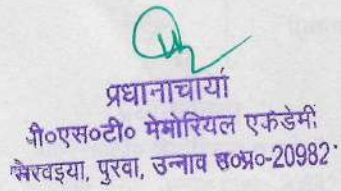 प्रधानाचार्या
पी०एस०टी० मेमोरियल एकेडेमी
भैरवइया, पुरवा, उन्नाव उ०प्र०-20982